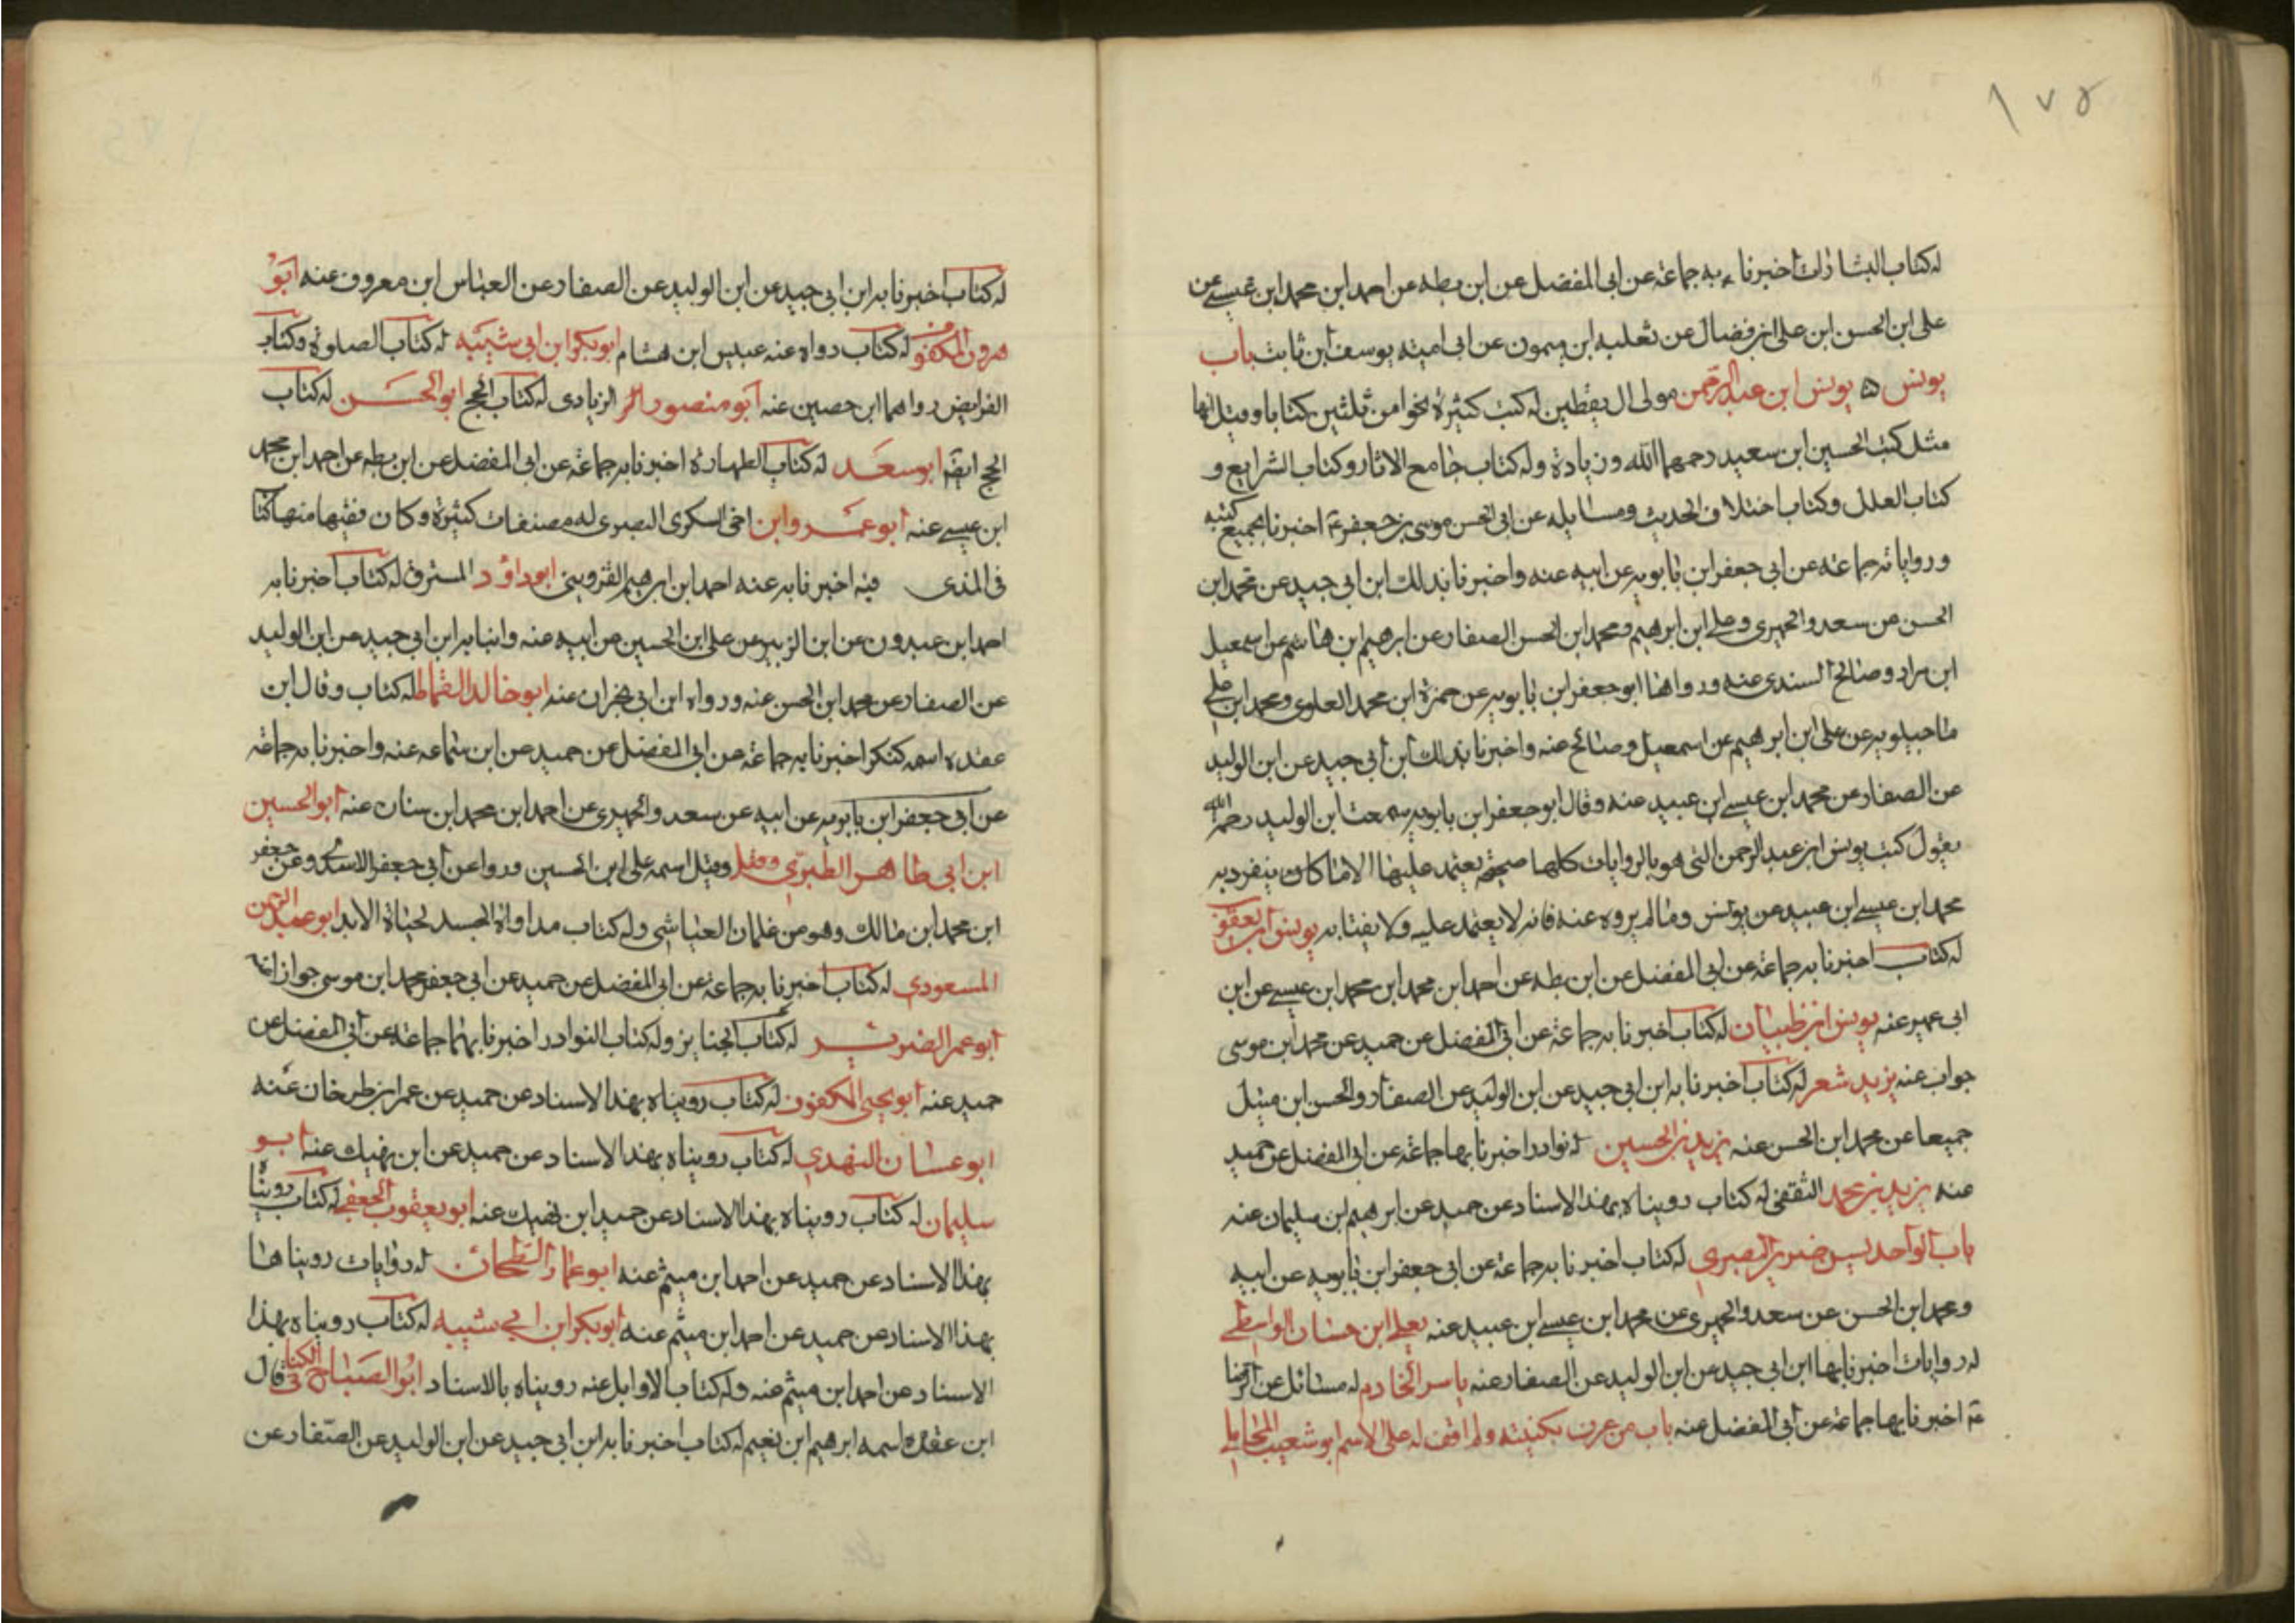 ١٧٥
له كتاب البشارات اخبرنا به جماعة عن ابى المفضل عن ابن بطه عن احمد ابن محمد ابن عيسى عن
على ابن الحسن ابن على ابن فضال عن ثعلبه ابن ميمون عن ابى اميته يوسف ابن ثابت باب
يونس ٥ يونس ابن عبد الرحمن مولى ال يقطين له كتب كثيرة نحوا من ثلثين كتابا وقيل انها
مثل كتب الحسين ابن سعيد رحمهما الله وزيادة وله كتاب جامع الاثار وكتاب الشرايع و
كتاب العلل وكتاب اختلاف الحديث ومسايله عن ابى الحسن موسى بن جعفر ع اخبرنا بجميع كتبه
ورواياته جماعة عن ابى جعفر ابن بابويه عن ابيه عنه واخبرنا بذلك ابن ابى جيد عن محمد ابن
الحسن عن سعد والحميرى وعلى ابن ابرهيم ومحمد ابن الحسن الصفار عن ابرهيم ابن هاشم عن اسمعيل
ابن مراد وصالح السندى عنه ورواها ابو جعفر ابن بابويه عن حمزة ابن محمد العلوى ومحمد ابن على
ماجيلويه عن على ابن ابرهيم عن اسمعيل وصالح عنه واخبرنا بذلك ابن ابى جيد عن ابن الوليد
عن الصفار عن محمد ابن عيسى ابن عبيد عنه وقال ابو جعفر ابن بابويه سمعت ابن الوليد رحمه الله
يقول كتب يونس ابن عبد الرحمن التى هو بالروايات كلها صحيحة يعتمد عليها الا ما كان ينفرد به
محمد ابن عيسى ابن عبيد عن يونس وما لم يروه عنه فانه لا يعتمد عليه ولا يفتا به يونس ابن يعقوب
له كتاب اخبرنا به جماعة عن ابى المفضل عن ابن بطه عن احمد ابن محمد ابن محمد ابن عيسى عن ابن
ابى عمير عنه يونس ابن ظبيان له كتاب اخبرنا به جماعة عن ابى المفضل عن حميد عن محمد ابن موسى
جواب عنه يزيد شعر له كتاب اخبرنا به ابن ابى جيد عن ابن الوليد عن الصفار والحسن ابن متيل
جميعا عن محمد ابن الحسن عنه يزيد بن الحسين له نوادر اخبرنا بها جماعة عن ابى المفضل عن حميد
عنه يزيد بن محمد الثقفى له كتاب رويناه بهذا الاسناد عن حميد عن ابرهيم ابن سليمان عنه
باب الواحد يس ضرير البصرى له كتاب اخبرنا به جماعة عن ابى جعفر ابن بابويه عن ابيه
ومحمد ابن الحسن عن سعد والحميرى عن محمد ابن عيسى ابن عبيد عنه يعلى ابن حسان الواسطى
له روايات اخبرنا بها ابن ابى جيد عن ابن الوليد عن الصفار عنه ياسر الخادم له مسائل عن الرضا
ع اخبرنا بها جماعة عن ابى المفضل عنه باب من عرف بكنيته ولم اقف له على الاسم ابو شعيب المحاملى
له كتاب اخبرنا به ابن ابى جيد عن ابن الوليد عن الصفار عن العباس ابن معروف عنه ابو
هرون المكفوف له كتاب رواه عنه عبيس ابن هشام ابو بكر ابن ابى شيبه له كتاب الصلوة وكتاب
الفرايض رواهما ابن حصين عنه ابو منصور الزيادى له كتاب الحج ابو الحسن له كتاب
الحج ايضا ابو سعد له كتاب الطهارة اخبرنا به جماعة عن ابى المفضل عن ابن بطه عن احمد ابن محمد
ابن عيسى عنه ابو عمرو ابن اخى السكرى البصرى له مصنفات كثيرة وكان فقيها منها كتا
فى المذى فيه اخبرنا به عنه احمد ابن ابرهيم القزوينى ابو داود المسترق له كتاب اخبرنا به
احمد ابن عبدون عن ابن الزبير عن على ابن الحسين عن ابيه عنه وانبا به ابن ابى جيد عن ابن الوليد
عن الصفار عن محمد ابن الحسن عنه ورواه ابن ابى نجران عنه ابو خالد القماط له كتاب وقال ابن
عقده اسمه كنكر اخبرنا به جماعة عن ابى المفضل عن حميد عن ابن سماعه عنه واخبرنا به جماعة
عن ابى جعفر ابن بابويه عن ابيه عن سعد والحميرى عن احمد ابن محمد ابن سنان عنه ابو الحسين
ابن ابى طاهر الطبرى وقيل وقيل اسمه على ابن الحسين وروا عن ابى جعفر الاسدى وعن جعفر
ابن محمد ابن مالك وهو من غلمان العياشى وله كتاب مداواة الجسد لحياة الابد ابو عبد الرحمن
المسعودى له كتاب اخبرنا به جماعة عن ابى المفضل عن حميد عن ابى جعفر محمد ابن موسى جوازا عنه
ابو عمر الضرير له كتاب الجنايز وله كتاب النوادر اخبرنا بهما جماعة عن ابى المفضل عن
حميد عنه ابو يحيى المكفوف له كتاب رويناه بهذا الاسناد عن حميد عن عمر ابن طرخان عنه
ابو عسان النهدى له كتاب رويناه بهذا الاسناد عن حميد عن ابن نهيك عنه ابو
سليمان له كتاب رويناه بهذا الاسناد عن حميد ابن نهيك عنه ابو يعقوب الجعفى له كتاب رويناه
بهذا الاسناد عن حميد عن احمد ابن ميثم عنه ابو عمار الطحان له روايات رويناها
بهذا الاسناد عن حميد عن احمد ابن ميثم عنه ابو بكر ابن ابى شيبه له كتاب رويناه بهذا
الاسناد عن احمد ابن ميثم عنه وله كتاب الاوايل عنه رويناه بالاسناد ابو الصباح الكنانى قال
ابن عقده اسمه ابرهيم ابن نعيم له كتاب اخبرنا به ابن ابى جيد عن ابن الوليد عن الصفار عن